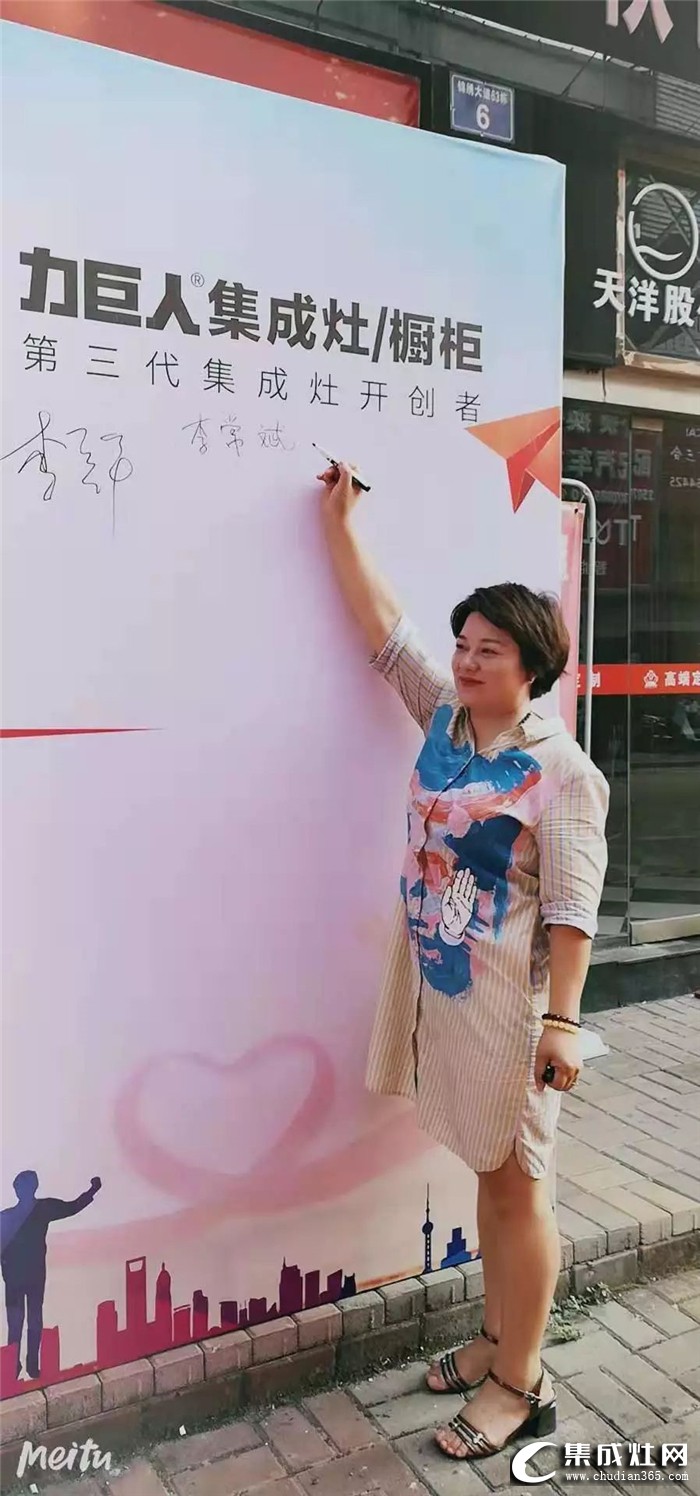 锦绣大道63栋
6
力巨人®集成灶/橱柜
第三代集成灶开创者
李常斌
天洋股
配 汽车
三会
64425
定制
高端定
meitu
集成灶网
www.chudian365.com